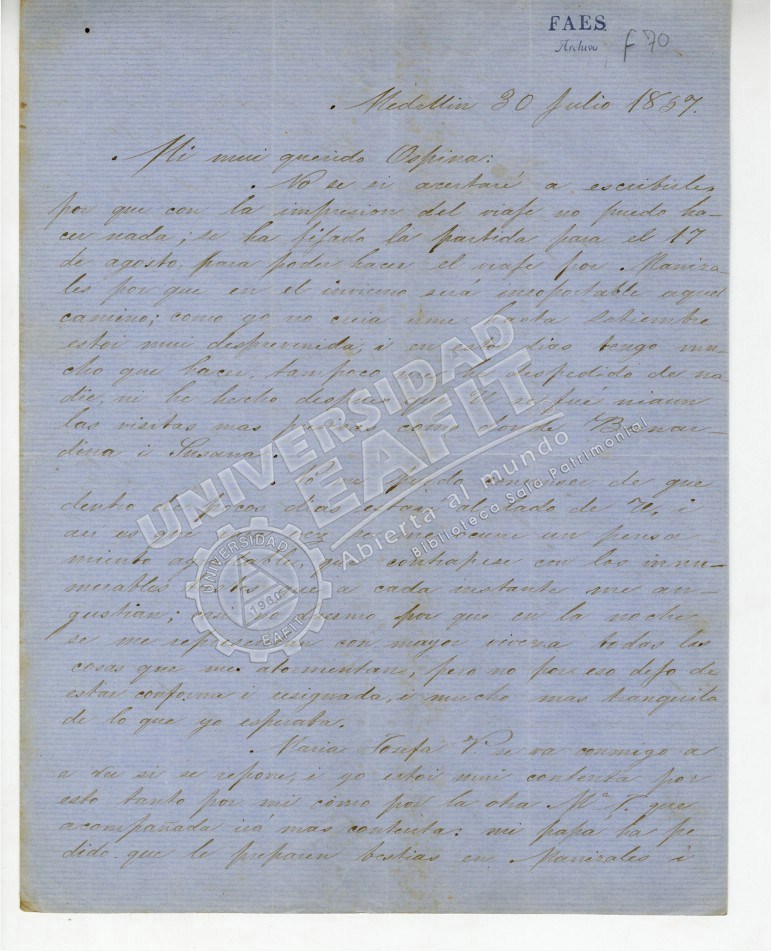 FAES
Archivo
F 70
Medellin 30 Julio 1857.
Mi mui querido Ospina:
No se si acertaré a escribirle,
por que con la impresion del viaje no puedo ha-
cer nada; se ha fijado la partida para el 17
de agosto, para poder hacer el viaje por Maniza-
les por que en el invierno será insoportable aquel
camino; como yo no creia irme hasta Setiembre
estoi mui desprevenida, i en estos dias tengo mu-
cho que hacer, tampoco me he despedido de na-
die, ni he hecho despues que U. se fue ni aun
las visitas mas precisas como donde Bernar-
dina i Susana.
Yo no puedo convencer de que
dentro de pocos dias estaré al lado de U, i
asi es que vez me ocurre un pensa-
miento agradable, que contrapese con los innu-
merables que a cada instante me an-
gustian; casi no duermo por que en la noche
se me representan con mayor viveza todas las
cosas que me atormentan, pero no por eso dejo de
estar conforme i resignada, i mucho mas tranquila
de lo que yo esperaba.
Maria Josefa V. se va conmigo a
a ver si se repone, i yo estoi mui contenta por
esto tanto por mi como por la otra Mª. J. que
acompañada irá mas contenta: mi papa ha pe-
dido que le preparen bestias en Manizales i
UNIVERSIDAD
EAFIT
Abierta al mundo
Biblioteca Sala Patrimonial
UNIVERSIDAD
1960
EAFIT